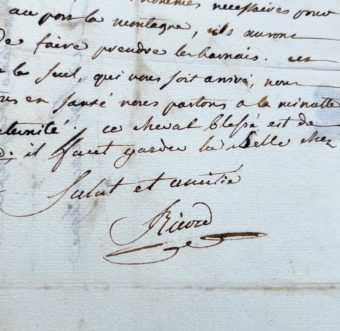 nécessaires pour
au pors la montagne, ils auront
de faire prendre le harnais. ces
le seul, qui vous soit arrivé, nous
en santé nous partons a la minutte
ce cheval blessé est de
il faut garder la selle chez
Salut et amitié
Ricord